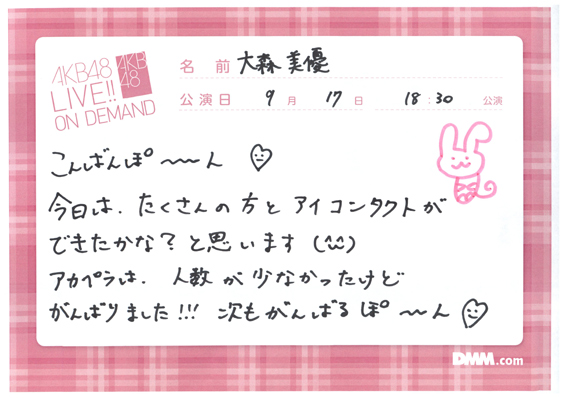 AKB48
LIVE!!
ON DEMAND
AKB
48
名 前 大森美優
公演日 9 月 17 日 18:30 公演
こんばんぽ〜〜ん
今日は、たくさんの方とアイコンタクトが
できたかな？と思います(^^)
アカペラは、人数が少なかったけど
がんばりました!!! 次もがんばるぽ〜〜ん
DMM.com